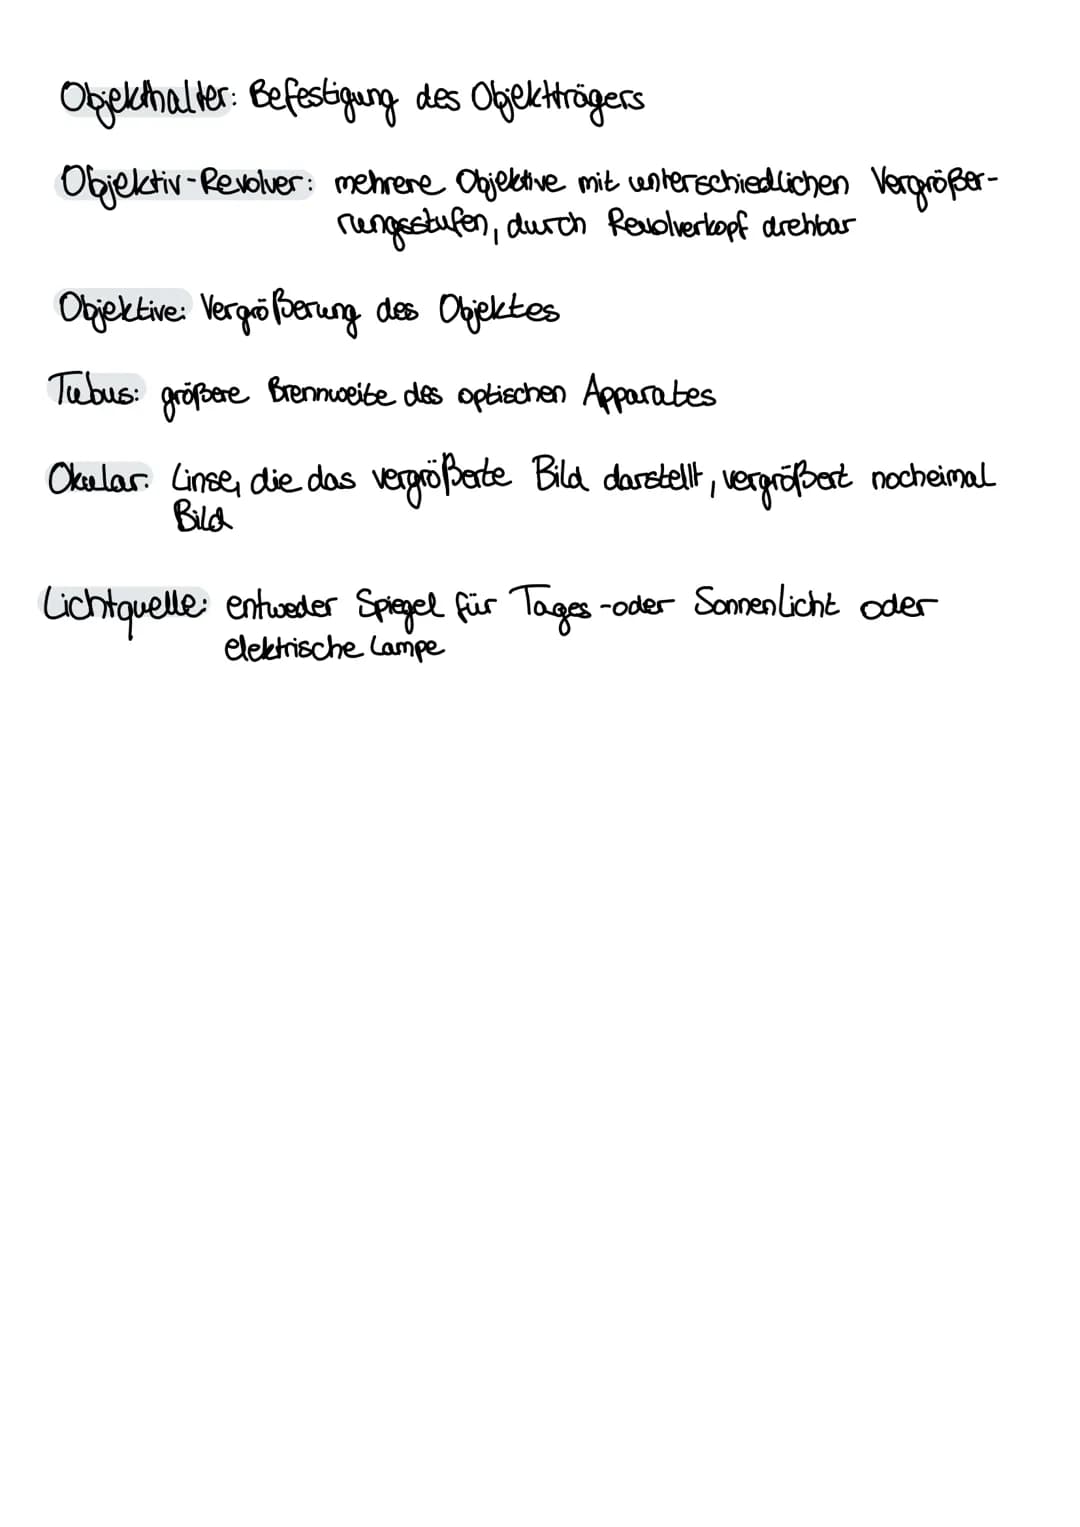 Objekthalter: Befestigung des Objektträgers
Objektiv-Revolver: mehrere Objektive mit unterschiedlichen Vergrößer-
rungsstufen, durch Revolverkopf drehbar
Objektive: Vergrößerung des Objektes
Tubus: größere Brennweite des optischen Apparates
Okular: Linse, die das vergrößerte Bild darstellt, vergrößert nocheimal
Bild
Lichtquelle: entweder Spiegel für Tages-oder Sonnenlicht oder
elektrische Lampe